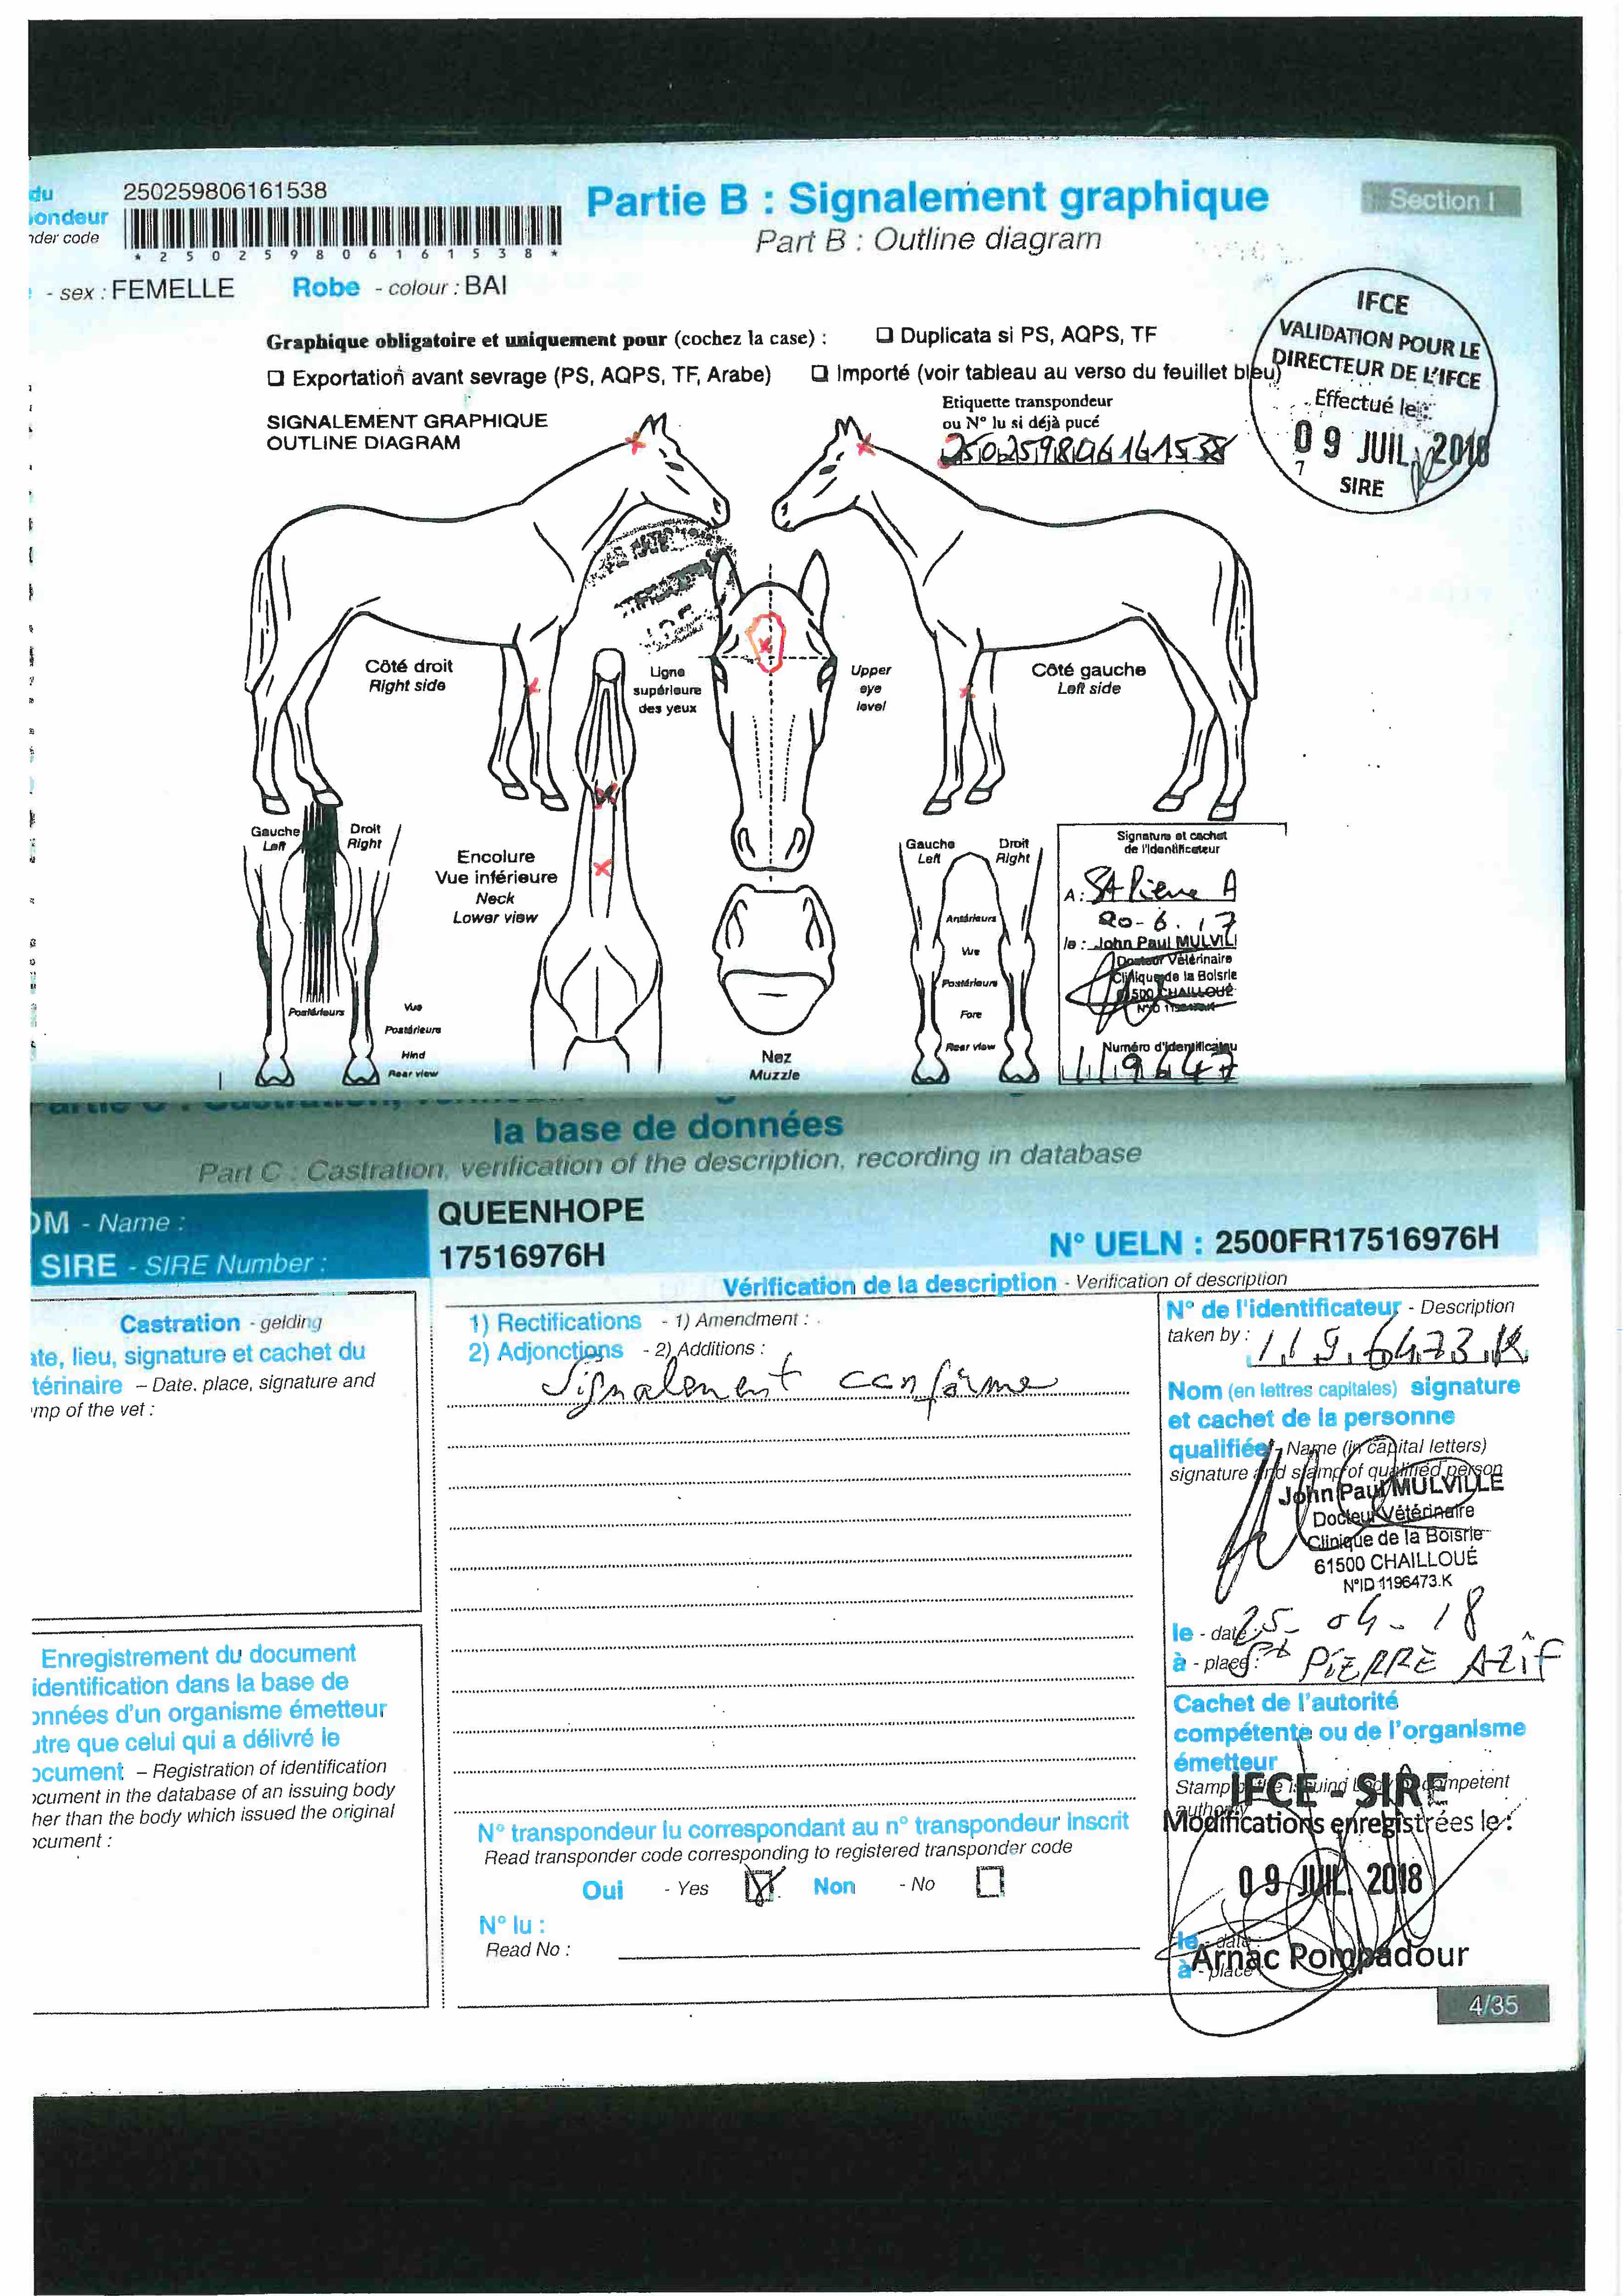 du
ondeur
der code
250259806161538
* 2 5 0 2 5 9 8 0 6 1 6 1 5 3 8 *
Partie B : Signalement graphique
Part B : Outline diagram
Section I
- sex : FEMELLE
Robe - colour : BAI
IFCE
VALIDATION POUR LE
DIRECTEUR DE L'IFCE
Effectué le :
09 JUIL. 2018
SIRE
Graphique obligatoire et uniquement pour (cochez la case) :
❏ Duplicata si PS, AQPS, TF
❏ Exportation avant sevrage (PS, AQPS, TF, Arabe)
❏ Importé (voir tableau au verso du feuillet bleu)
SIGNALEMENT GRAPHIQUE
OUTLINE DIAGRAM
Etiquette transpondeur
ou N° lu si déjà pucé
250259806161538
Côté droit
Right side
Ligne
supérieure
des yeux
Upper
eye
level
Côté gauche
Left side
Gauche
Left
Droit
Right
Encolure
Vue inférieure
Neck
Lower view
Postérieurs
Vue
Postérieure
Hind
Rear view
Nez
Muzzle
Gauche
Left
Droit
Right
Antérieurs
Vue
Postérieure
Fore
Rear view
Signature et cachet
de l'identificateur
A : St Pierre A
20-6.17
le : John Paul MULVILL
Docteur Vétérinaire
Clinique de la Boisrie
61500 CHAILLOUÉ
Numéro d'identificateu
119647
la base de données
Part C : Castration, verification of the description, recording in database
OM - Name :
QUEENHOPE
SIRE - SIRE Number :
17516976H
N° UELN : 2500FR17516976H
Vérification de la description - Verification of description
Castration - gelding
ate, lieu, signature et cachet du
térinaire – Date. place, signature and
mp of the vet :
1) Rectifications - 1) Amendment :
2) Adjonctions - 2) Additions :
Signalement conforme
N° de l'identificateur - Description
taken by : 1196473K
Nom (en lettres capitales) signature
et cachet de la personne
qualifiée - Name (in capital letters)
signature and stamp of qualified person
John Paul MULVILLE
Docteur Vétérinaire
Clinique de la Boisrie
61500 CHAILLOUÉ
N°ID 1196473.K
le - date : 25-04-18
à - place : St PIERRE AZIF
Enregistrement du document
identification dans la base de
onnées d'un organisme émetteur
utre que celui qui a délivré le
ocument – Registration of identification
ocument in the database of an issuing body
her than the body which issued the original
ocument :
Cachet de l'autorité
compétente ou de l'organisme
émetteur
Stamp of the issuing body or competent
authority
IFCE - SIRE
Modifications enregistrées le :
09 JUIL. 2018
le - date :
à - place
Arnac Pompadour
N° transpondeur lu correspondant au n° transpondeur inscrit
Read transponder code corresponding to registered transponder code
Oui - Yes
Non - No
N° lu :
Read No :
4/35